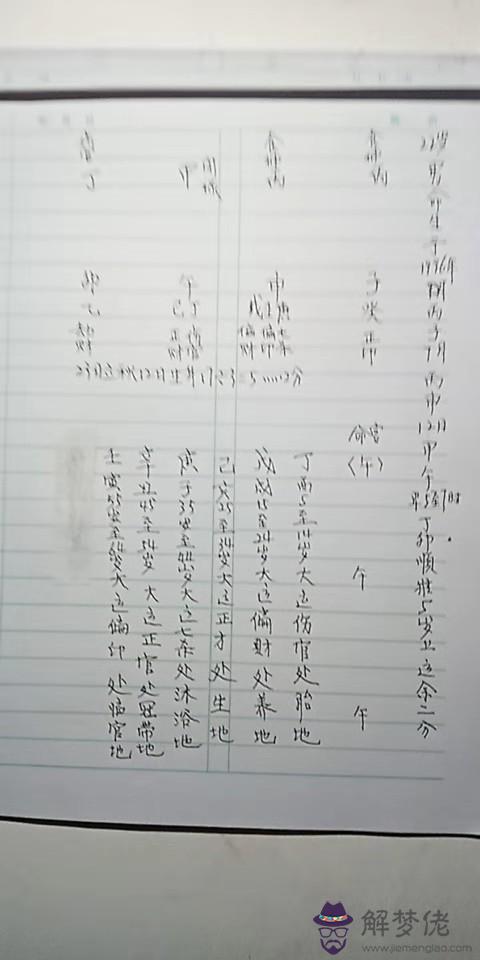 22岁男命生于1996年丙子7月丙申12日甲午早5至7时丁卯顺推5岁上运余二分
食神丙
子癸正印
命宫（午）
午
午
食神丙
申
戊壬庚
偏财偏印七杀
日
甲
午
己丁
正财伤官
伤官丁
卯乙劫财
23日立秋12日生
丁酉5至14岁大运伤官处胎地
戊戌15至24岁大运偏财处养地
己亥25至34岁大运正才处生地
庚子35岁至44岁大运七杀处沐浴地
辛丑45至54岁大运正官处冠带地
壬寅55岁至64岁大运偏印处临官地
解梦佬
www.jiemenglao.com